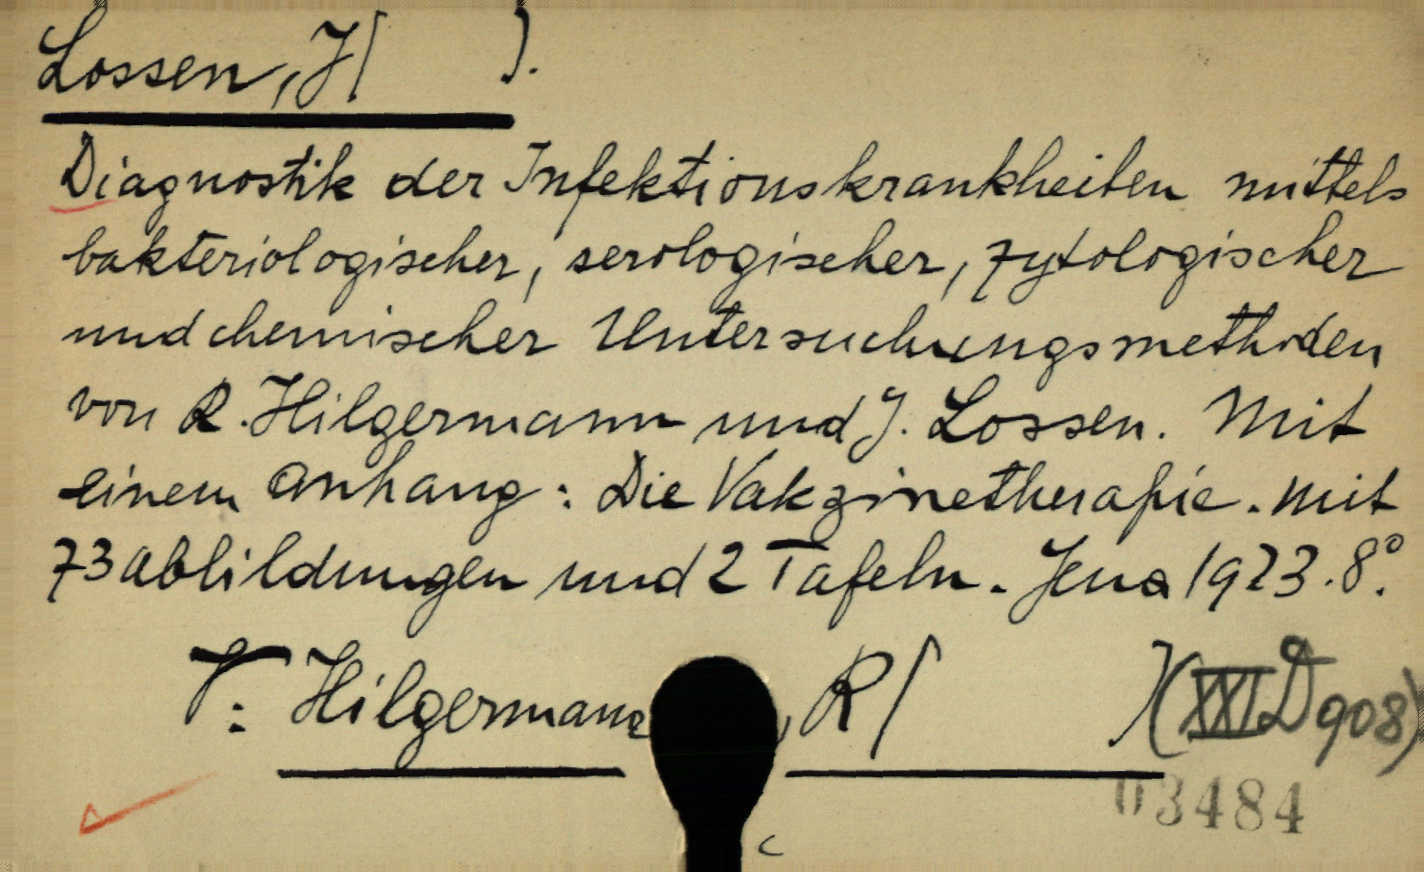 Lossen, J( ).
Diagnostik der Infektionskrankheiten mittels
bakteriologischer, serologischer, zytologischer
und chemischer Untersuchungsmethoden
von R. Hilgermann und J. Lossen. Mit
einem Anhang: Die Vakzinetherapie. Mit
73 Abbildungen und 2 Tafeln. Jena 1923. 8°.
V: Hilgermann, R( ) (XXI D 908)
03484